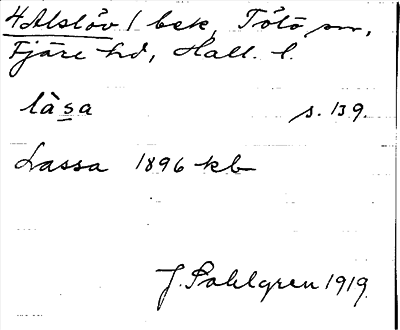 4 Alslöv / bek, Tölö sn,
Fjäre hd, Hall. l.
làsa s. 139.
Lassa 1896 kb
J. Sahlgren 1919